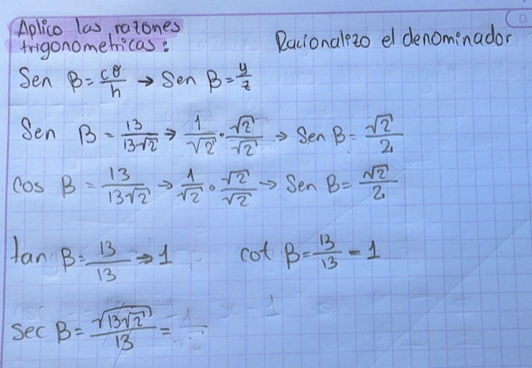 Aplico las razones
trigonometricas:
Racionalizo el denominador
Sen B = cθ/h → Sen B = y/z
Sen B = 13/13√2 → 1/√2 · √2/√2 → Sen B = √2/2
Cos B = 13/13√2 → 1/√2 · √2/√2 → Sen B = √2/2
tan B = 13/13 → 1 cot B = 13/13 = 1
sec B = √13√2/13 =